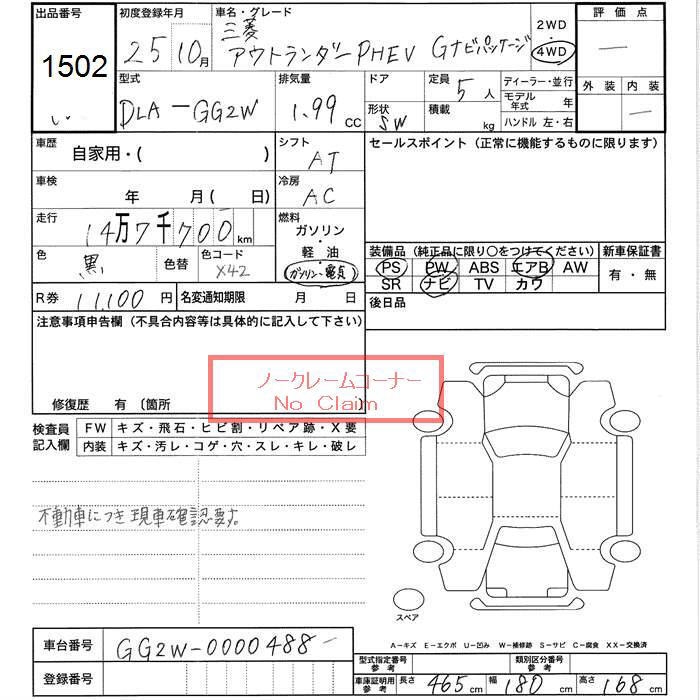 出品番号 初度登録年月 車名・グレード 2WD 評価点
1502 25 10月 三菱 アウトランダーPHEV Gナビパッケージ 4WD
型式 排気量 ドア 定員 5人 ディーラー・並行 外装 内装
DLA-GG2W 1.99 CC 形状 SW 積載 kg モデル年式 年
ハンドル 左・右
車歴 自家用・( ) シフト AT セールスポイント (正常に機能するものに限ります)
車検 年 月( 日) 冷房 AC
走行 14万7千700km 燃料 ガソリン・軽油
色 黒 色替 色コード X42 ガソリン・電気
装備品 (純正品に限り○をつけてください) 新車保証書
PS PW ABS エアB AW 有・無
SR ナビ TV カワ
R券 11,100円 名変通知期限 月 日 後日品
注意事項申告欄 (不具合内容等は具体的に記入して下さい)
ノークレームコーナー
No Claim
修復歴 有 〔箇所 〕
検査員記入欄 FW キズ・飛石・ヒビ割・リペア跡・X要
内装 キズ・汚レ・コゲ・穴・スレ・キレ・破レ
不動車につき現車確認要す。
スペア
A-キズ E-エクボ U-凹み W-補修跡 S-サビ C-腐食 XX-交換済
車台番号 GG2W-0000488-
型式指定番号 参考 類別区分番号 参考
登録番号 車庫証明用 参考 長さ 465cm 幅 180cm 高さ 168cm